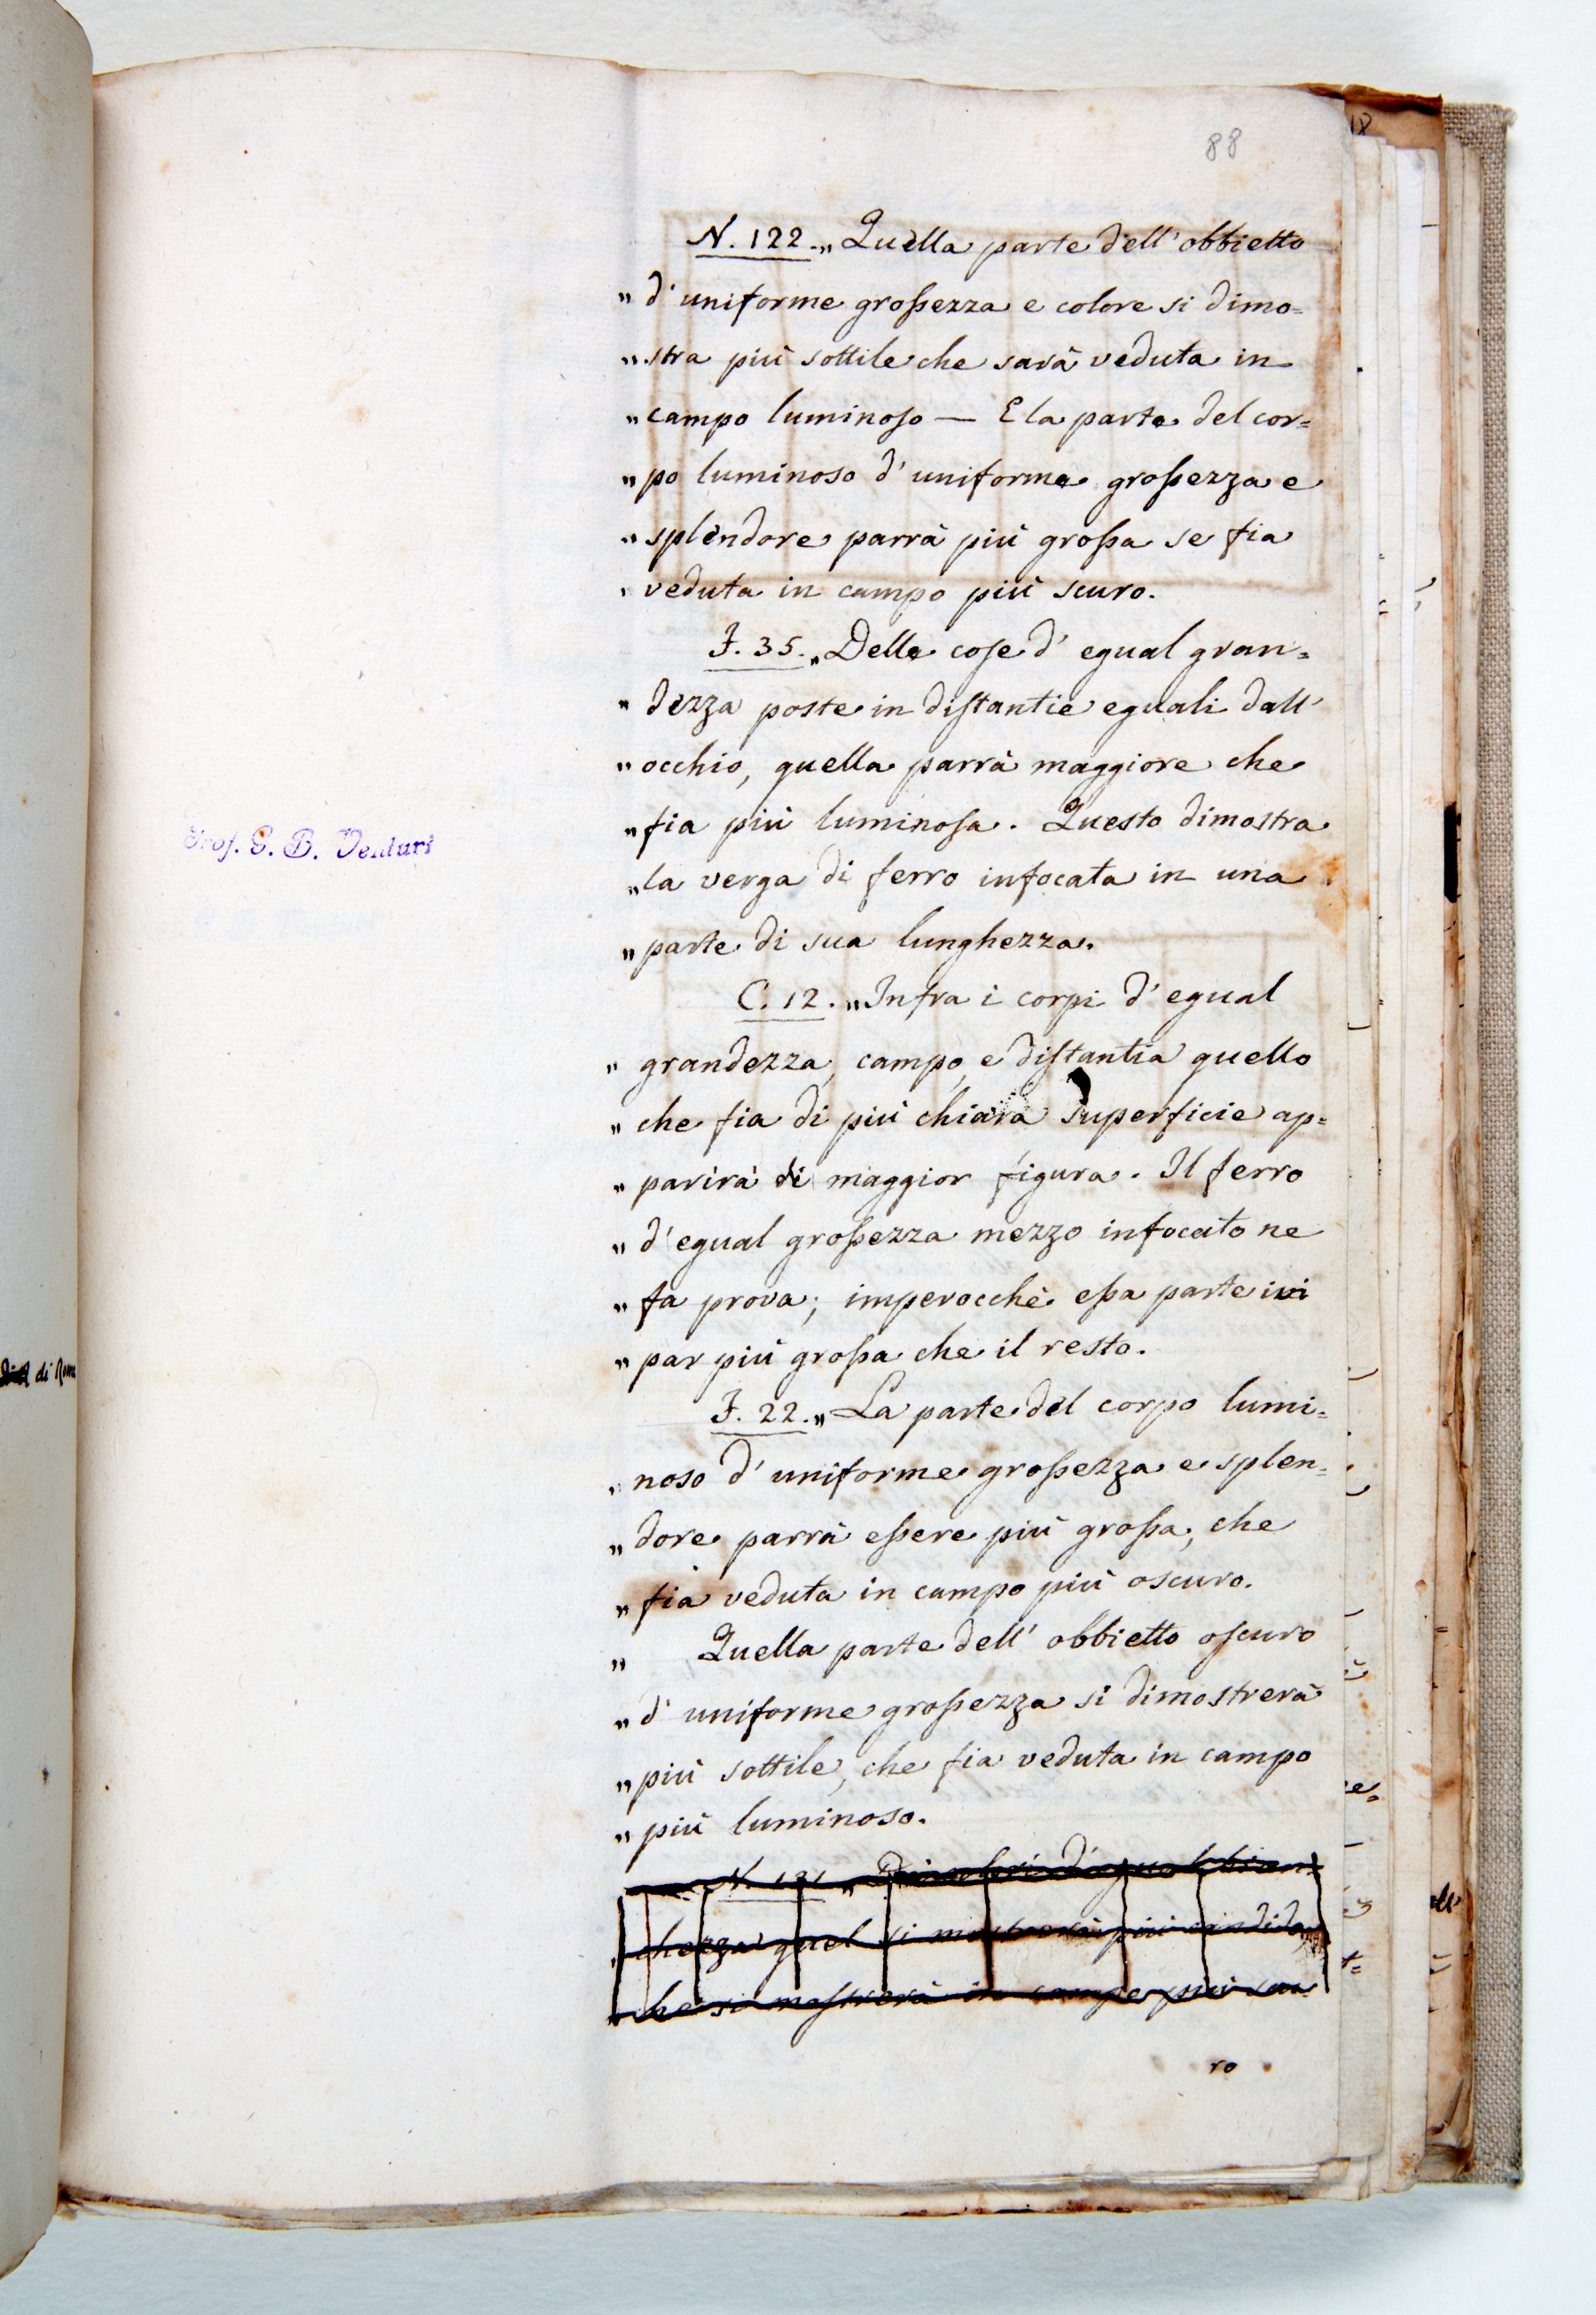 88
N. 122. „ Quella parte dell' obbietto
„ d' uniforme grossezza e colore si dimo=
„ stra più sottile che sarà veduta in
„ campo luminoso — E la parte del cor=
„ po luminoso d' uniforme grossezza e
„ splendore parrà più grossa se fia
„ veduta in campo più scuro.
F. 35. „ Delle cose d' egual gran=
„ dezza poste in distantie eguali dall'
„ occhio, quella parrà maggiore che
„ fia più luminosa. Questo dimostra
„ la verga di ferro infocata in una
„ parte di sua lunghezza.
C. 12. „ Infra i corpi d' egual
„ grandezza, campo, e distantia quello
„ che fia di più chiara superficie ap=
„ parirà di maggior figura. Il ferro
„ d' egual grossezza mezzo infocato ne
„ fa prova; imperocchè essa parte ivi
„ par più grossa che il resto.
F. 22. „ La parte del corpo lumi=
„ noso d' uniforme grossezza e splen=
„ dore parrà essere più grossa, che
„ fia veduta in campo più oscuro.
„ Quella parte dell' obbietto oscuro
„ d' uniforme grossezza si dimostrerà
„ più sottile, che fia veduta in campo
„ più luminoso.
d'egual bian=
chezza quel si mostrerà più candido
che si mostrerà in campo più scu
ro
Prof. G. B. Venturi
di Roma
18